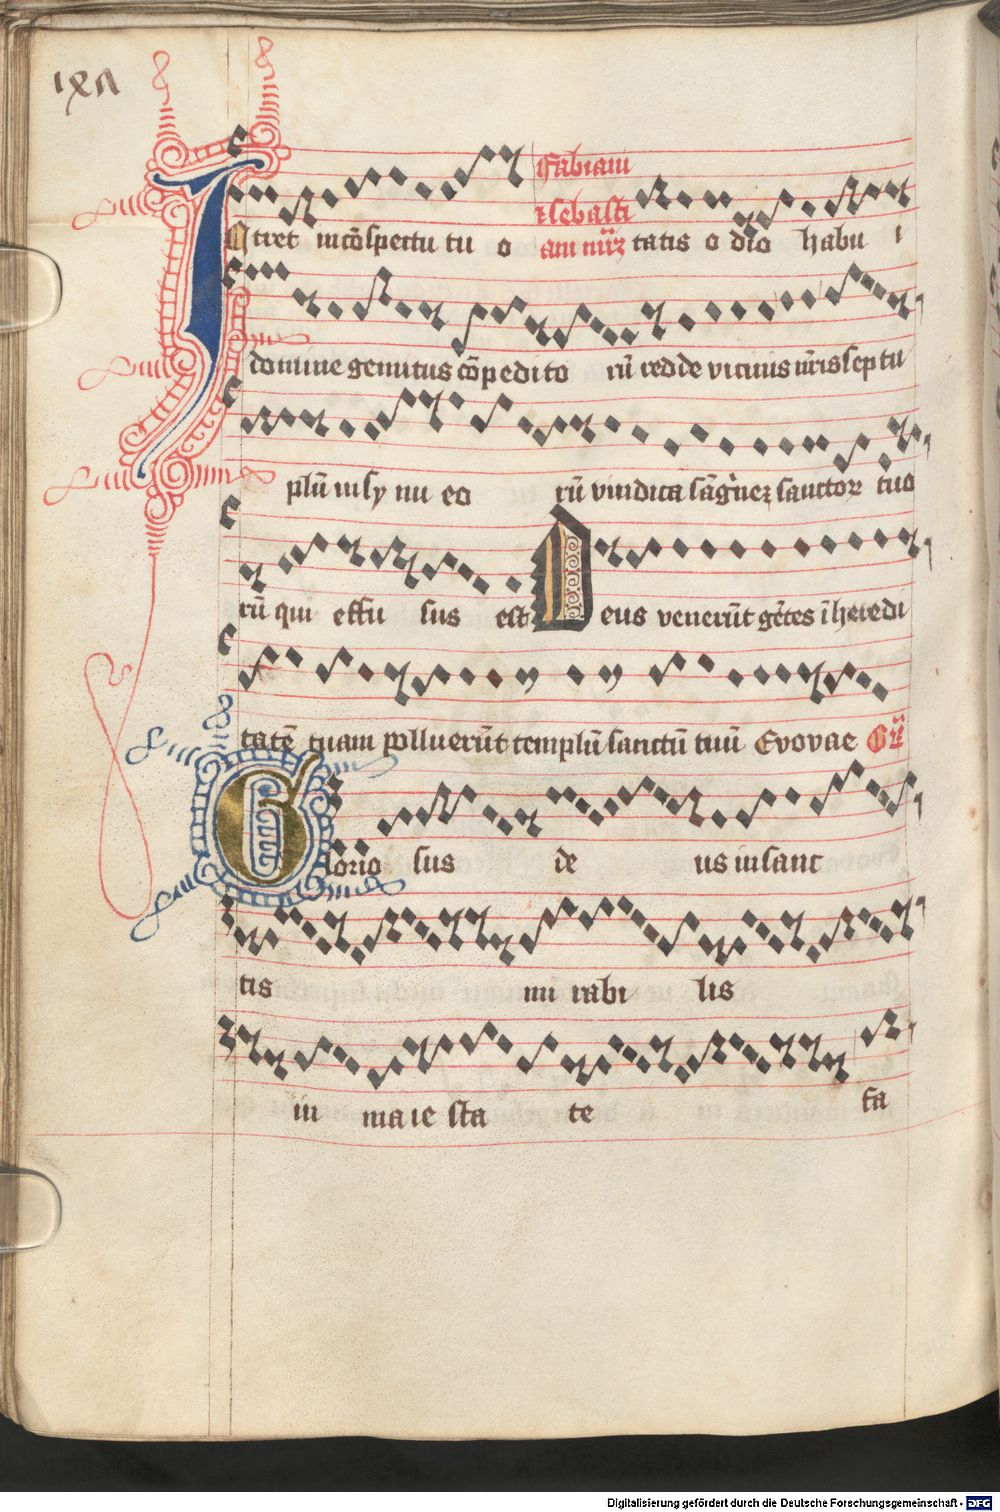 lxv
Fabiani
⁊ sebasti
ani mr̄ʒ
INtret in cōspectu tu o tatis o dīo habu i
domine gemitus cōpedito rū redde vicinis nr̄is septu
plū in sy nu eo rū vindica sāgͥneʒ sanctoꝝ tuo
rū qui effu sus est Deus venerūt gētes ī heredi
tatē tuam polluerūt templū sanctū tuū Evovae
Glorio sus de us in sanc
tis mi rabi lis
in ma ie sta te fa
Digitalisierung gefördert durch die Deutsche Forschungsgemeinschaft - DFG